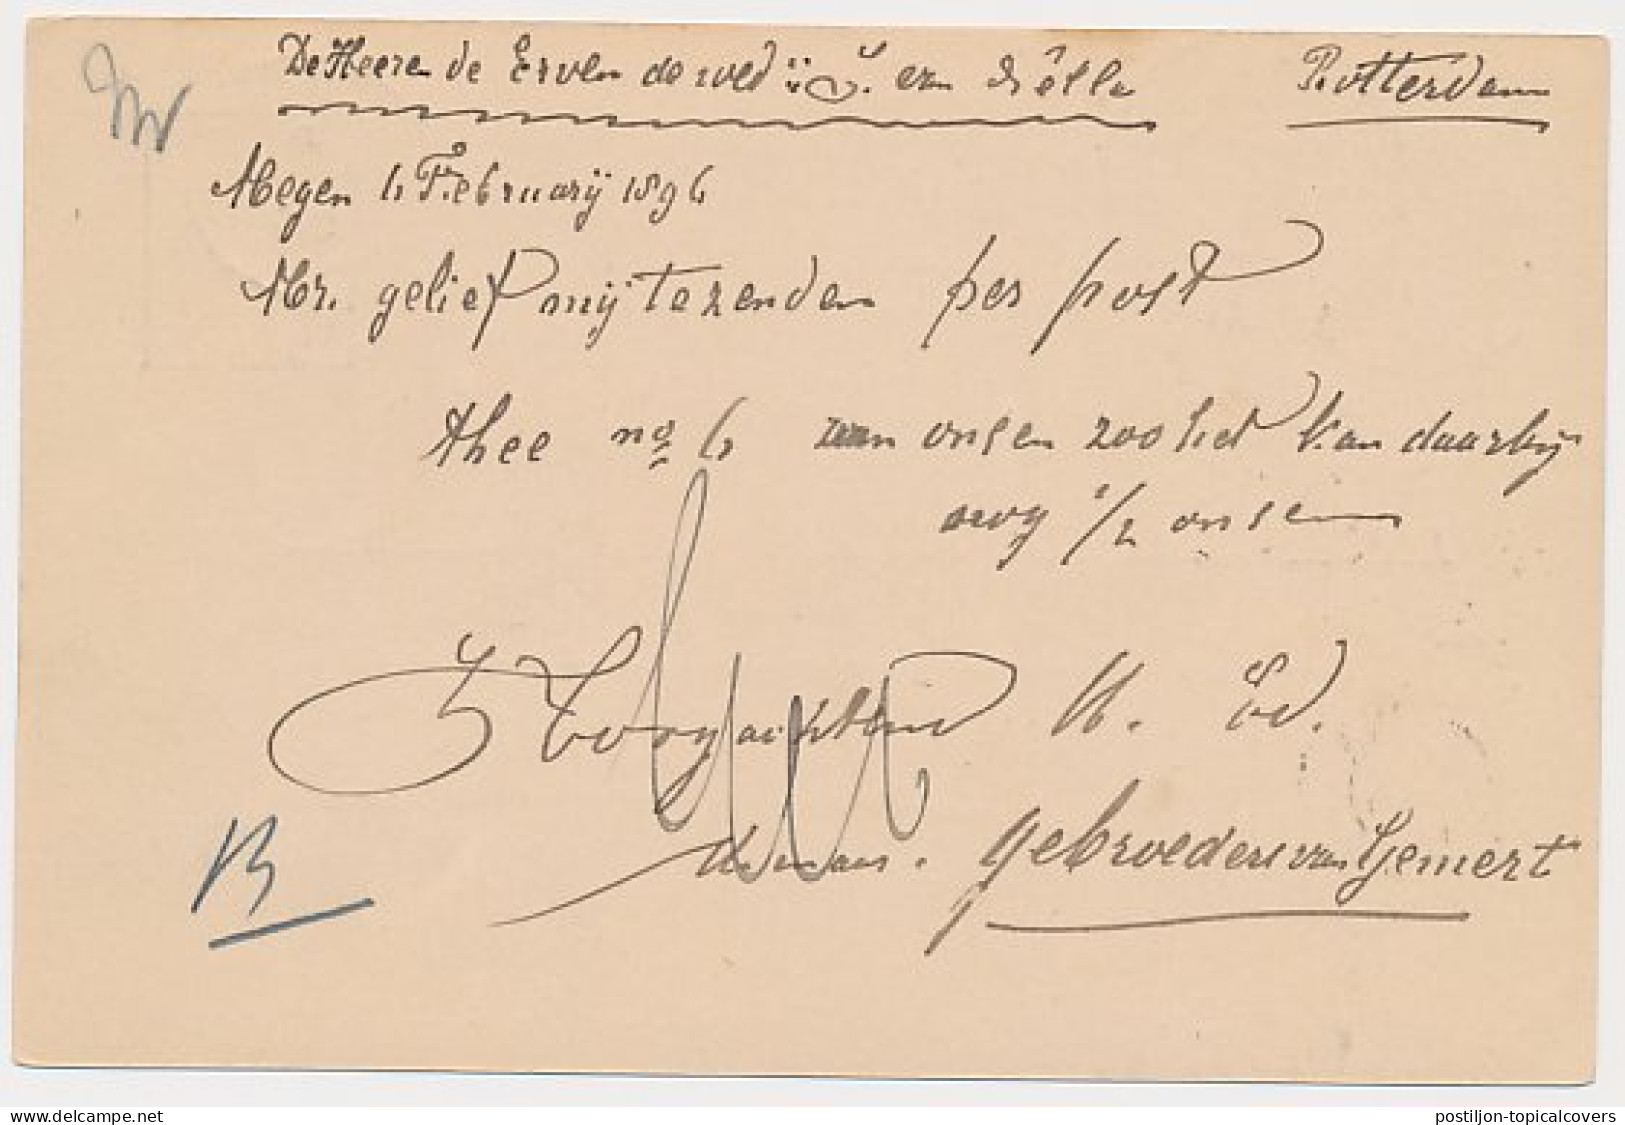 De Heeren de Erven de wed: J. van Nelle Rotterdam
Megen 6 Februarij 1896
Mr. gelief mij te zenden per post
thee no 6 van onsen zoo het kan daarbij
nog 1/2 onsen
Hoogachtend U. Ed.
Dienaar. Gebroeders van Gemert
B
delcampe.net
postiljon-topicalcovers